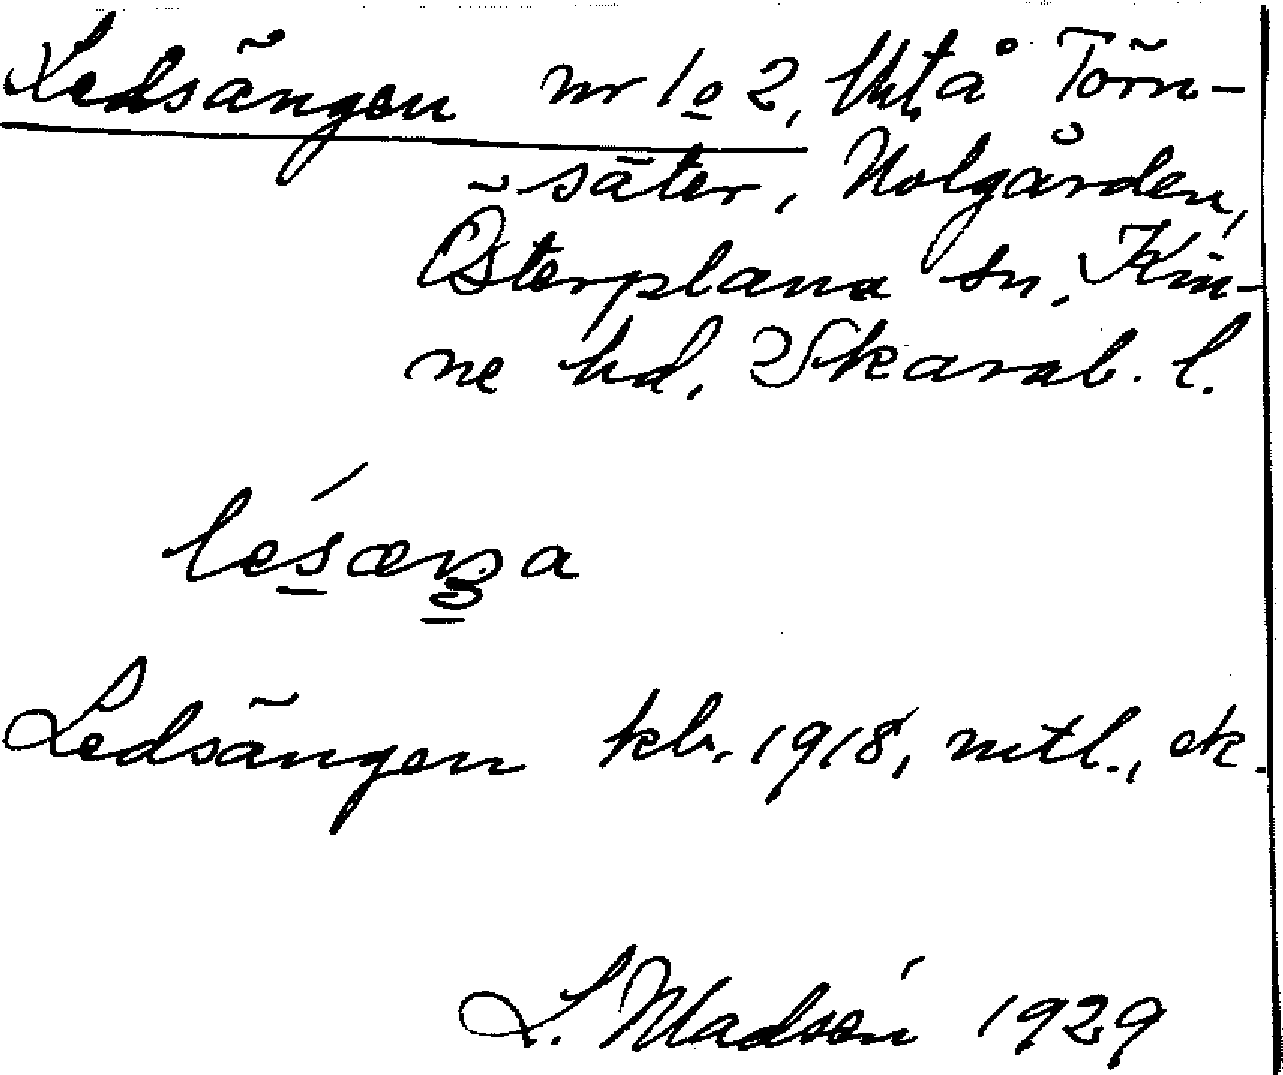 Ledsängen nr 1 o 2, Uht å Törn-
säter, Nolgården,
Österplana sn, Kin-
ne hd, Skarab. l.
Ledsängen kb. 1918, mtl., ek.
L. Madsén 1929